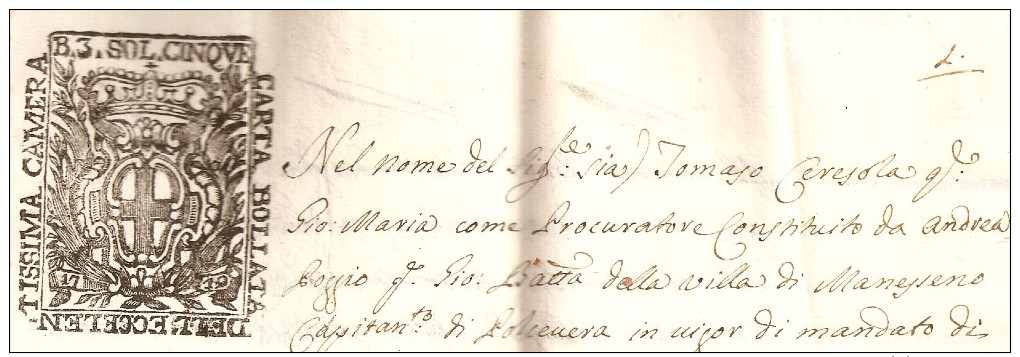 B. 3. SOL. CINQVE
CARTA BOLLATA
DELL'ECCELEN
TISSIMA CAMERA
17 49
1.
Nel nome del Sig.re sia) Tomaso Ceresola q.
Gio: Maria come Procuratore Constituito da Andrea
Poggio q. Gio: Batta della villa di Manesseno
Capitan.to di Polcevera in vigor di mandato di